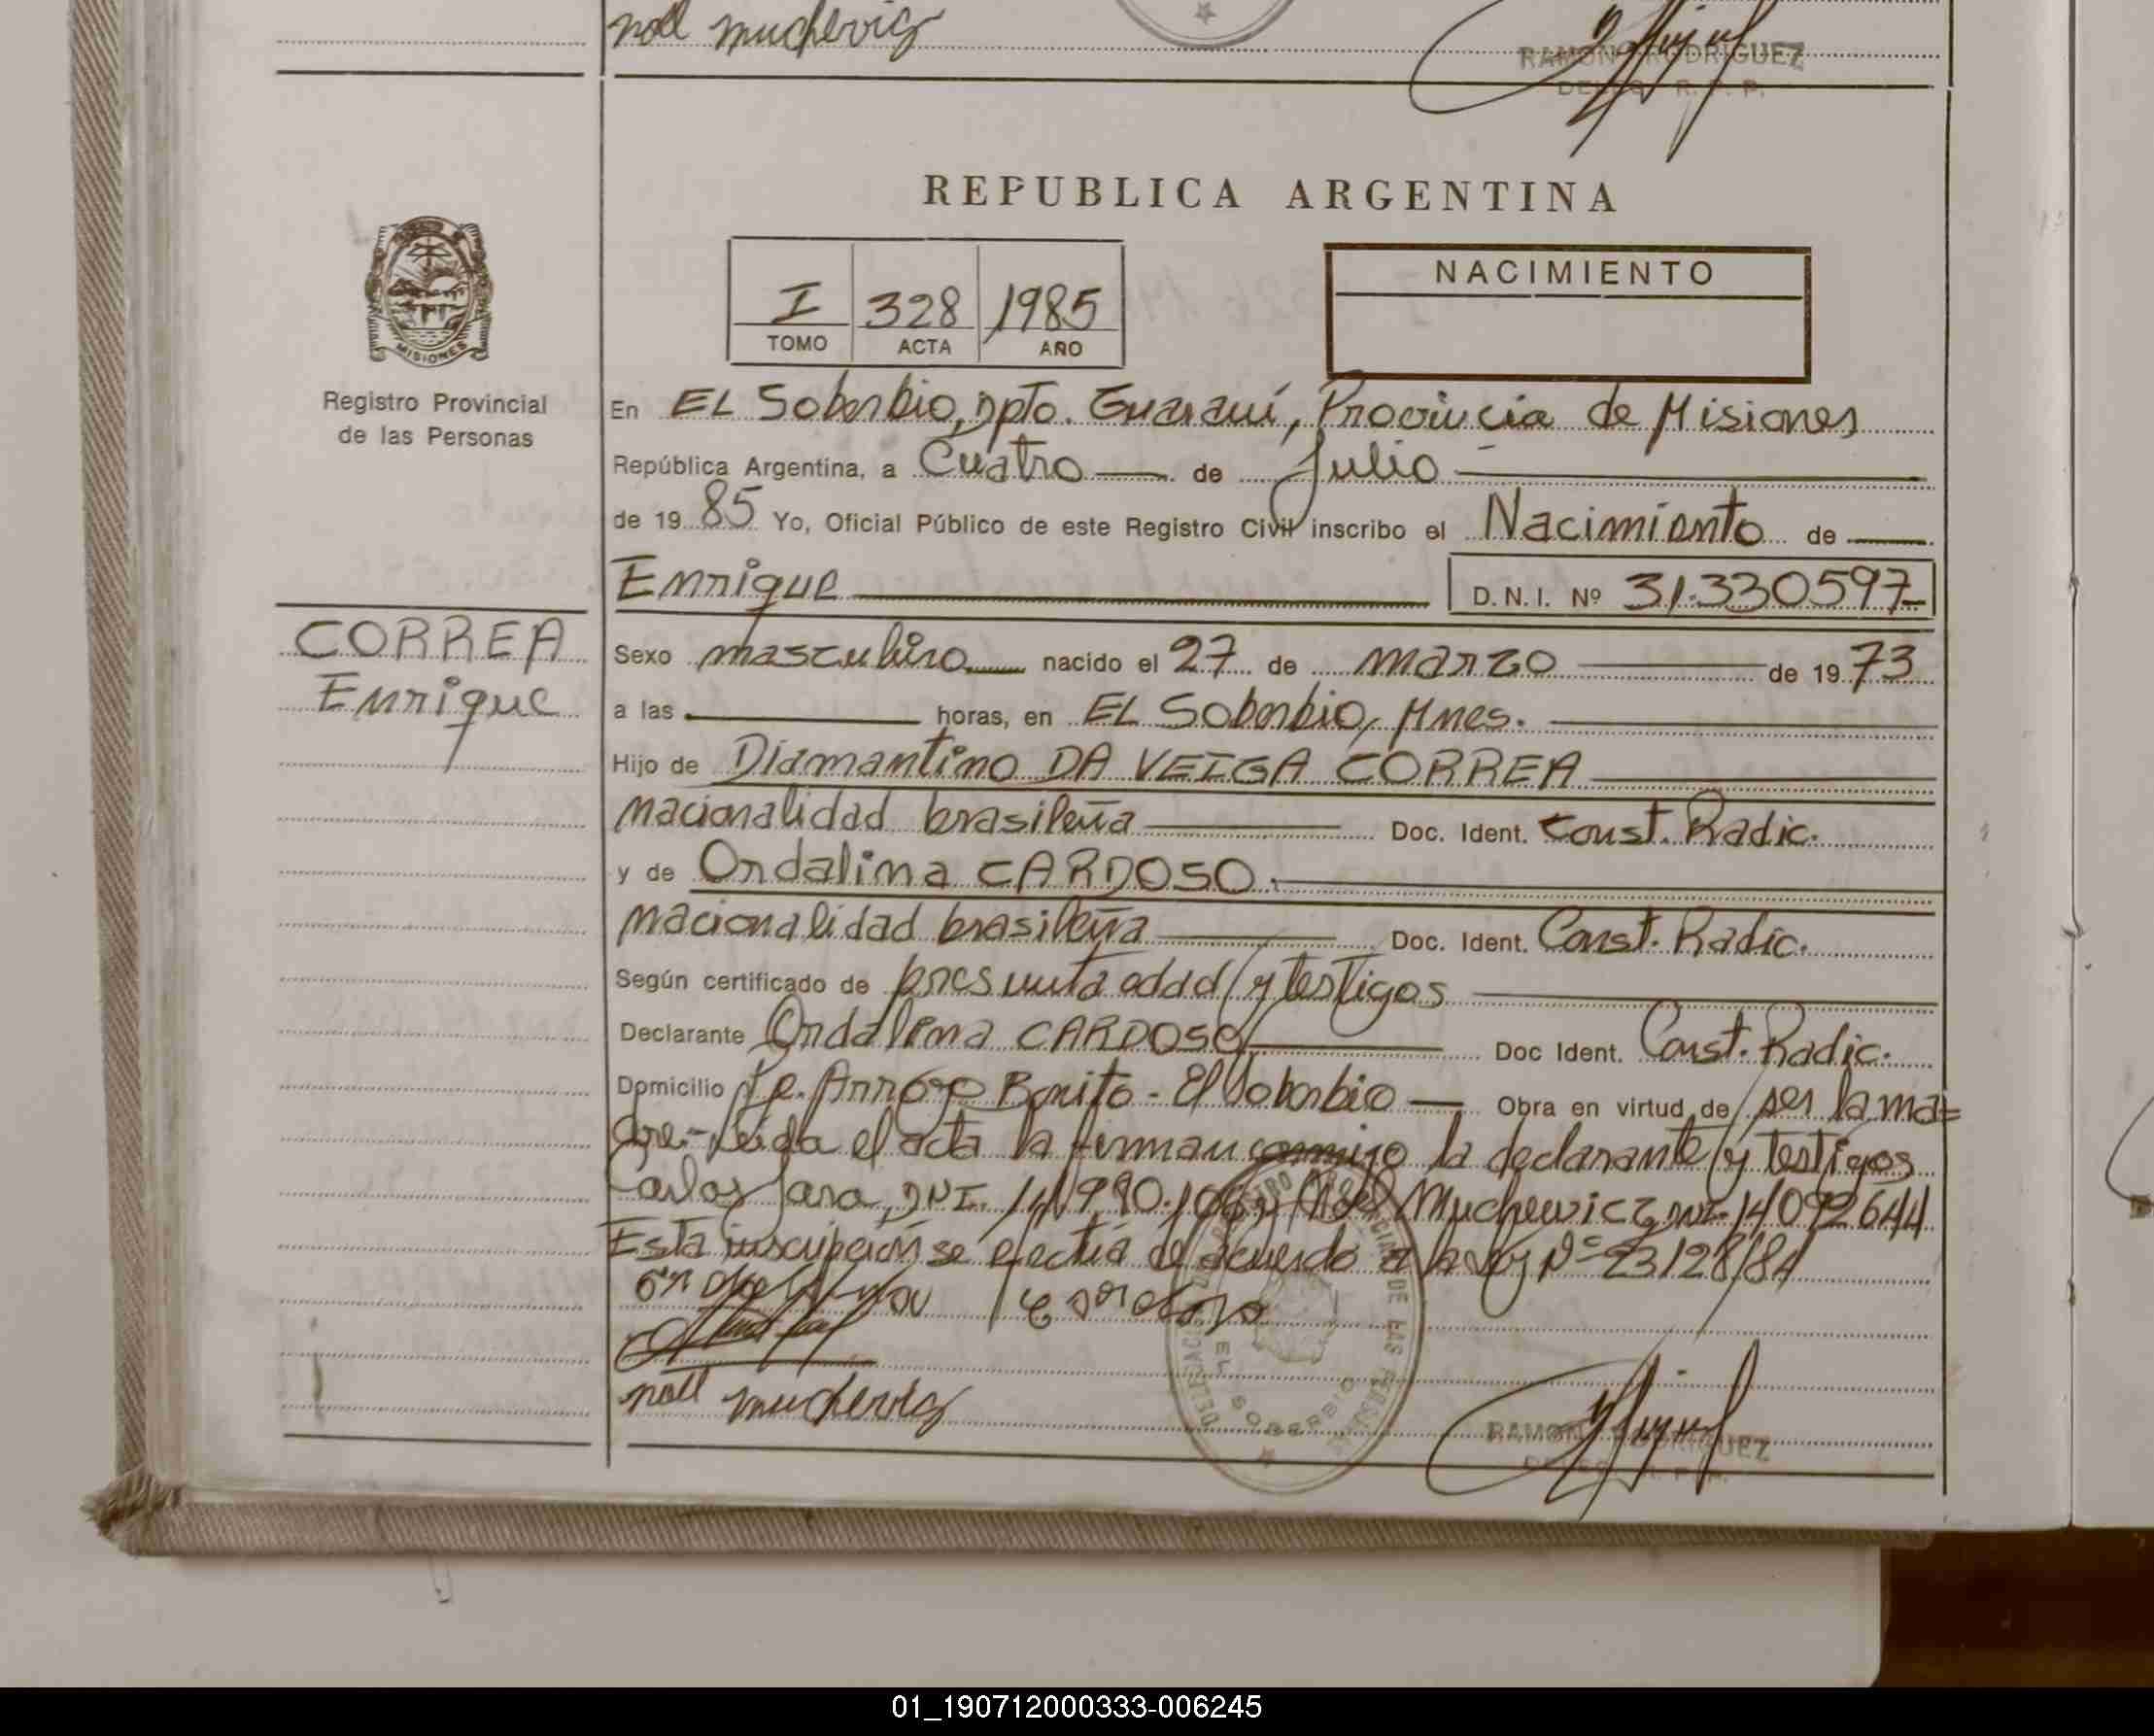 noll muchevicz
RAMON RODRIGUEZ
DELEG. R. P. P.
REPUBLICA ARGENTINA
I 328 1985
TOMO ACTA AÑO
NACIMIENTO
MISIONES
Registro Provincial
de las Personas
En EL Soberbio, Dpto. Guaraní, Provincia de Misiones
República Argentina, a Cuatro de Julio
de 1985 Yo, Oficial Público de este Registro Civil inscribo el Nacimiento de
Enrique D.N.I. Nº 31.330597
CORREA
Enrique
Sexo masculino nacido el 27 de marzo de 1973
a las horas, en EL Soberbio, Mnes.
Hijo de Diamantino DA VEIGA CORREA
nacionalidad brasileña Doc. Ident. Const. Radic.
y de Ordalina CARDOSO.
nacionalidad brasileña Doc. Ident. Const. Radic.
Según certificado de presunta edad y testigos
Declarante Ordalina CARDOSO Doc Ident. Const. Radic.
Domicilio Pje. Arroyo Bonito - El Soberbio Obra en virtud de ser la ma=
dre.- Leida el acta la firman conmigo la declarante y testigos
Carlos Jara, DNI. y Noll Muchewicz DNI. 14092644
Esta inscripción se efectúa de acuerdo a la Ley Nº 23128/84
noll muchevicz
EL SOBERBIO
RAMON RODRIGUEZ
01_190712000333-006245